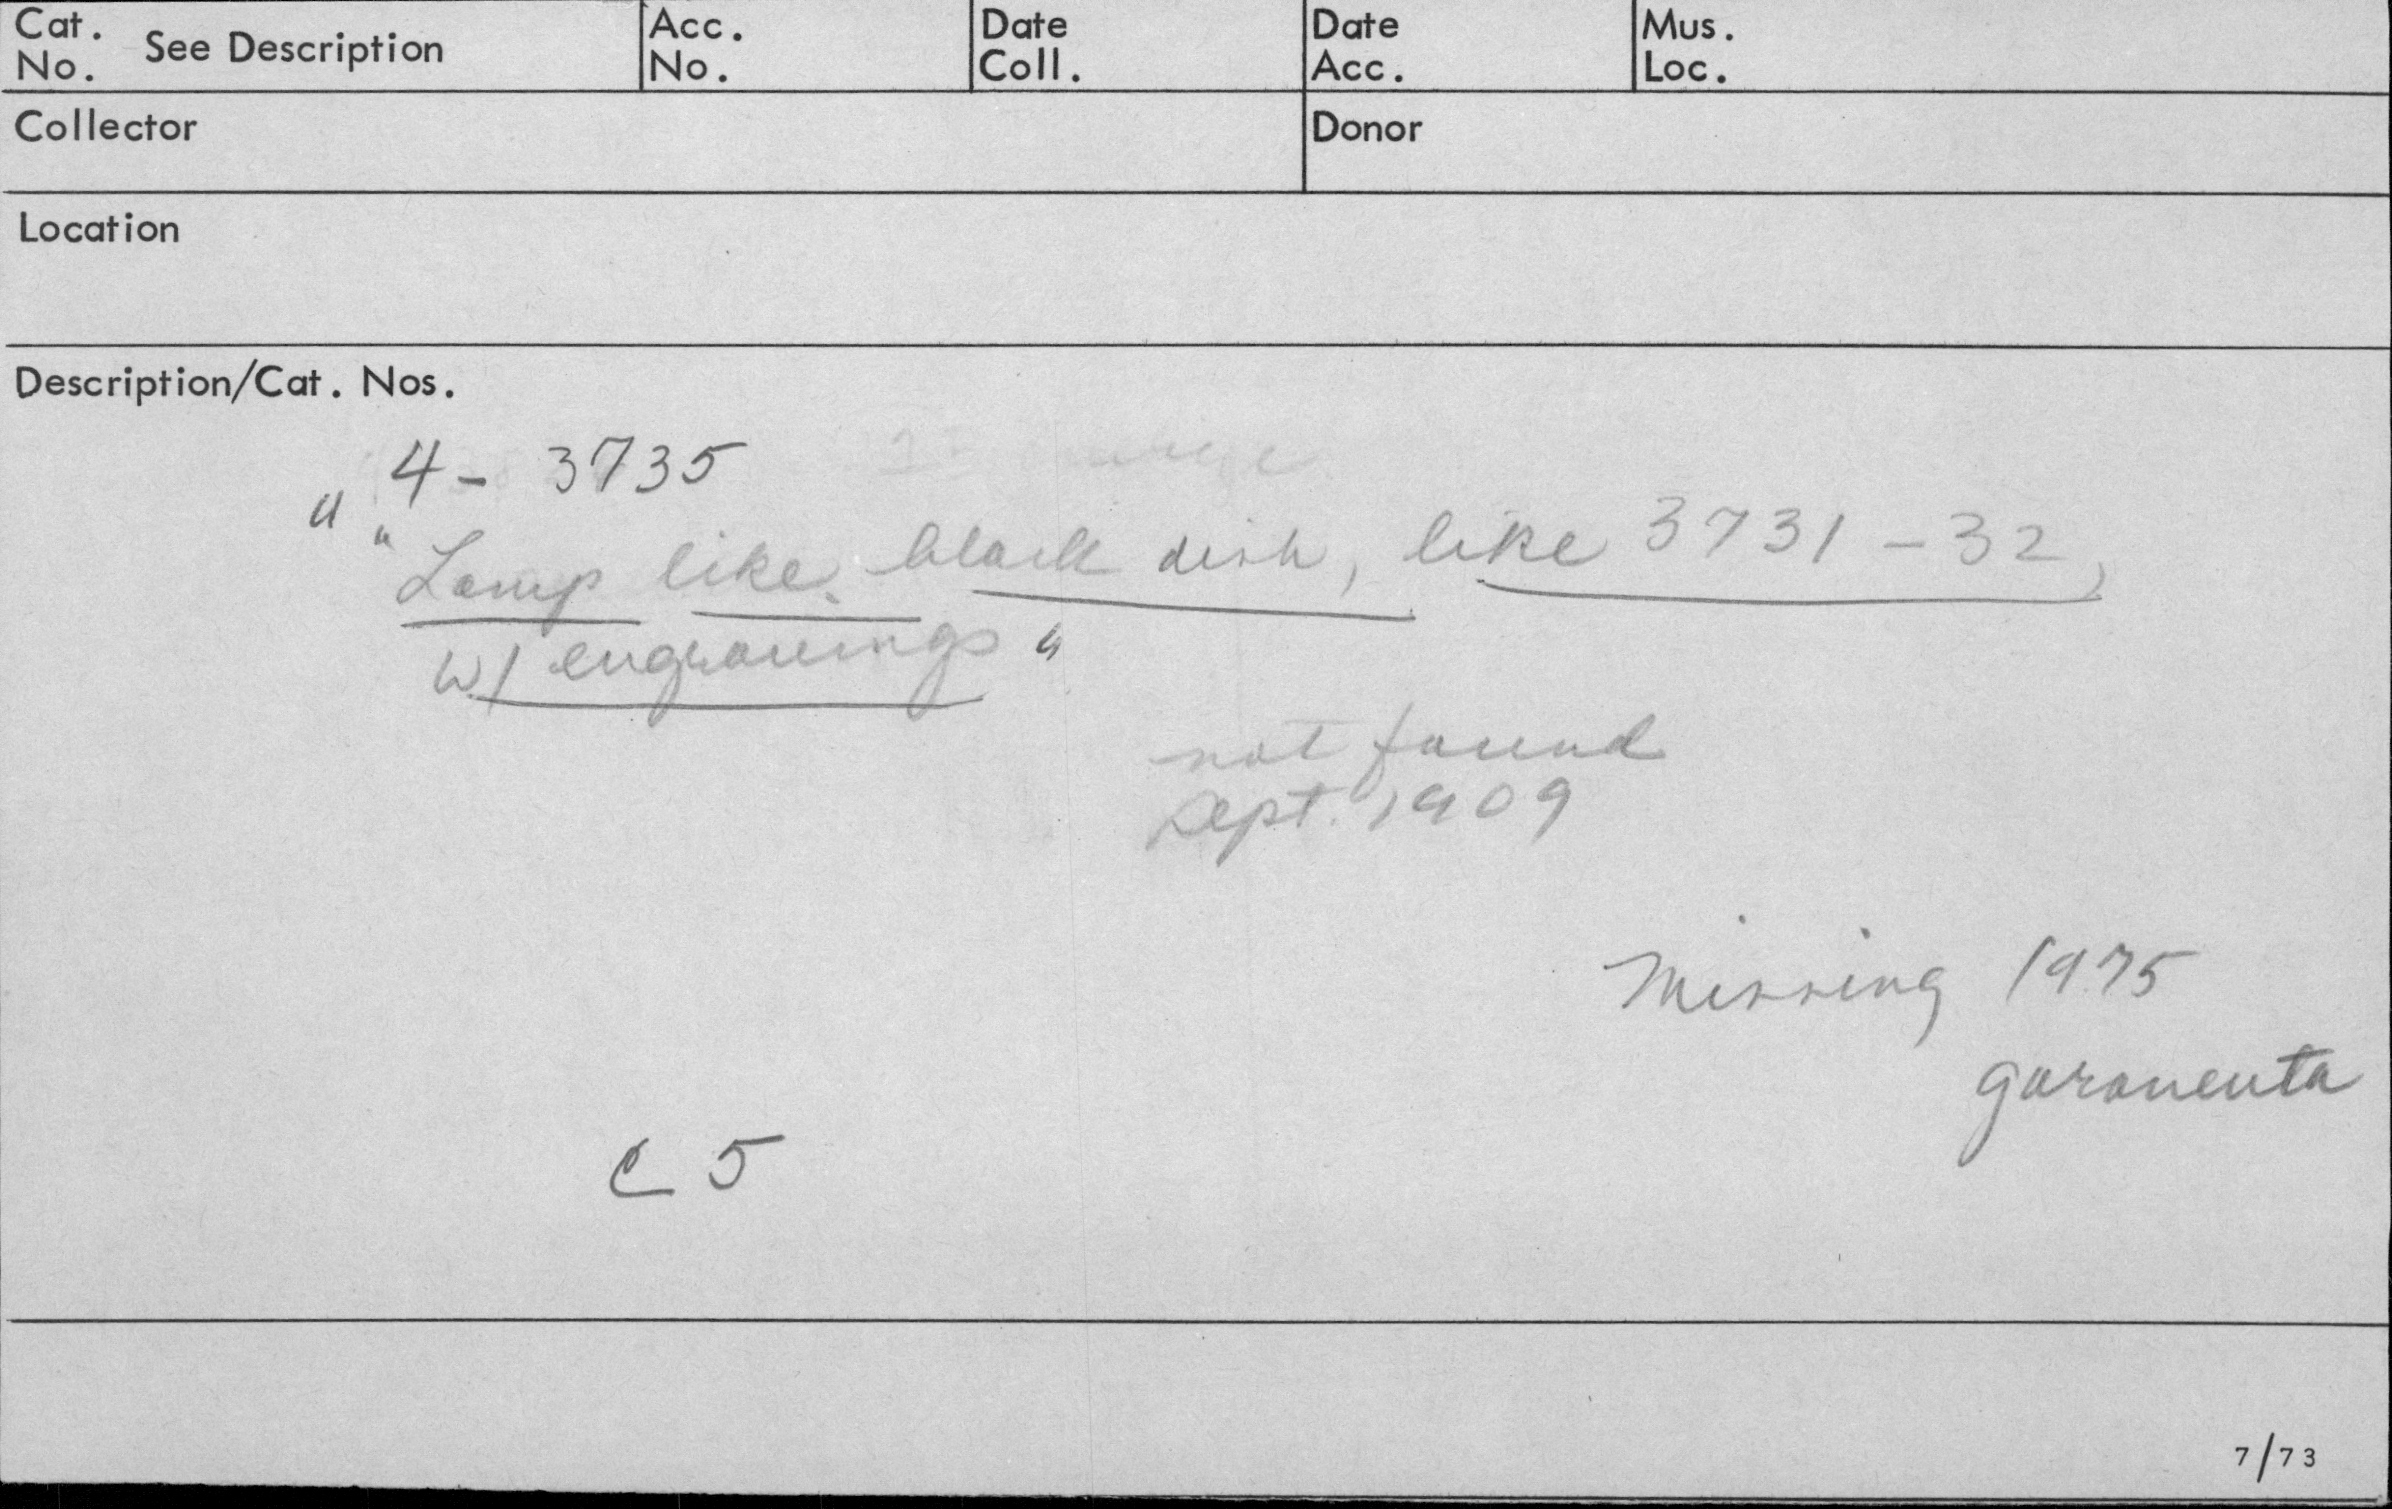 Cat. No. See Description
Acc. No.
Date Coll.
Date Acc.
Mus. Loc.
Collector
Donor
Location
Description/Cat. Nos.
4- 3735
" "Lamp like black dish, like 3731-32,
w/ engravings"
not found
Sept. 1909
Missing 1975
C 5
7/73